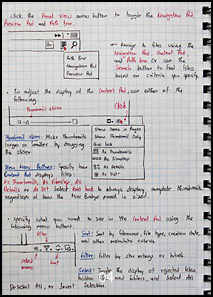 click the Panel View menu button to toggle the Navigation Pod,
Preview Pod and Path Bar.
Path Bar
Navigation Pod
Preview Pod
Navigate to files using the
Navigation Pod, Content Pod,
and Path Bar or use the
Search button to find files
based on criteria you specify
To adjust the display of the Content Pod, use either of the
following.
Thumbnail slider
Click
Show Items in Pages
Show Thumbnail Only
Grid lock
As Thumbnails
As Filmstrip
As Details
As List
Thumbnail Slider: Make thumbnails
larger or smaller by dragging
the slider
Menu Buttons: Specify how
Content Pod displays files:
As Thumbnails, As Filmstrip, As
Details or As List. Select Grid lock to always display complete thumbnails
regardless of how the Mini Bridge panel is sized.
Specify what you want to see in the Content Pod using the
following menu buttons.
Sort: Sort by filename, file type, creation date,
and other metadata criteria.
Filter: Filter by star ratings or labels.
Select: Toggle the display of rejected files,
hidden files and folders, and Select All,
Deselect All, or Invert Selection.
Select
Filter
Sort